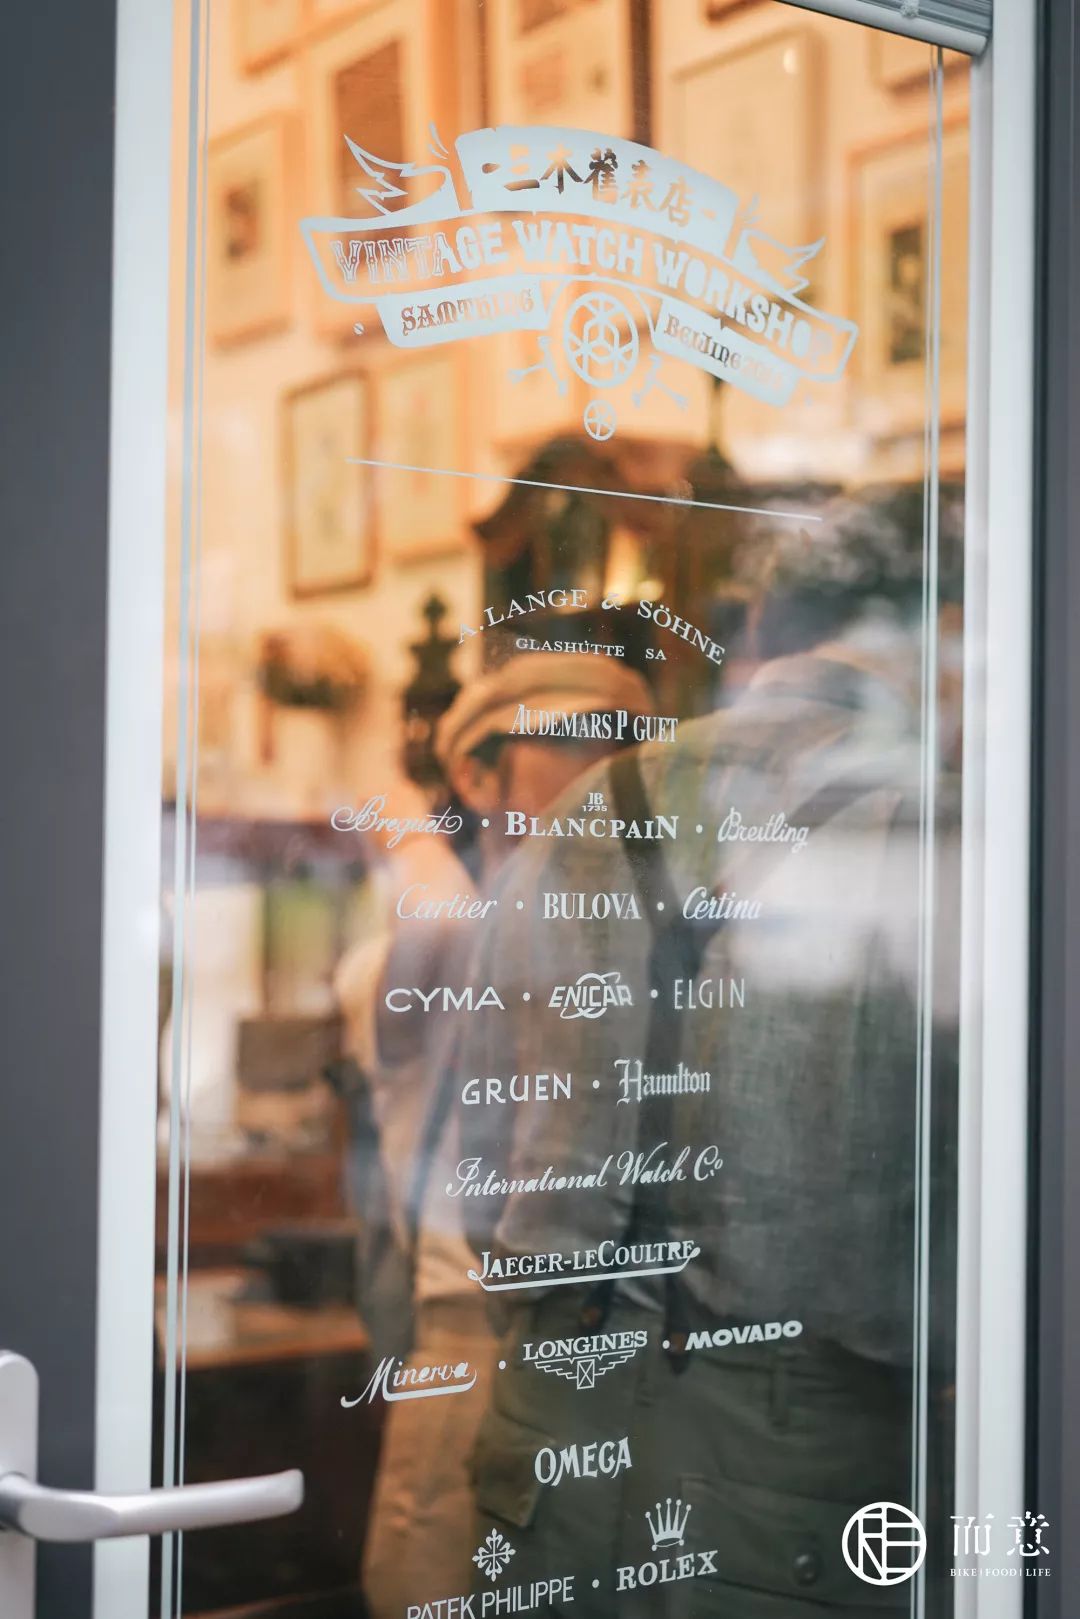 ·三木舊表店·
VINTAGE WATCH WORKSHOP
SAMTHING
BEIJING
A. LANGE & SÖHNE
GLASHÜTTE SA
AUDEMARS P GUET
Breguet · BLANCPAIN · Breitling
JB
1735
Cartier · BULOVA · Certina
CYMA · ENICAR · ELGIN
GRUEN · Hamilton
International Watch Co
JAEGER-LECOULTRE
Minerva · LONGINES · MOVADO
OMEGA
PATEK PHILIPPE · ROLEX
而意
BIKE|FOOD|LIFE